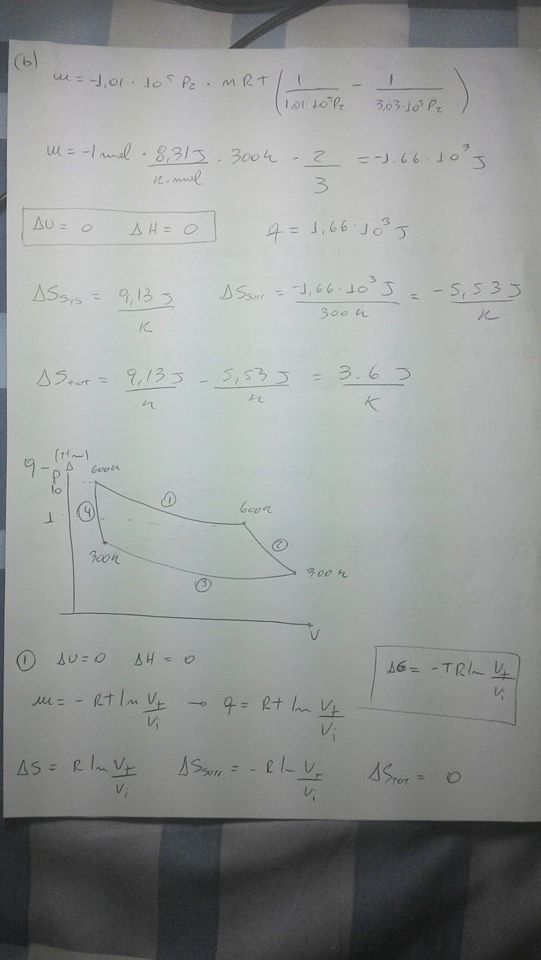 (b)
w = -1,01 · 10⁵ Pa · nRT ( 1 / 1,01·10⁵Pa - 1 / 3,03·10⁵Pa )
w = -1 mol · 8,31 J / K·mol · 300K · 2 / 3 = -1.66·10³ J
ΔU = 0 ΔH = 0 q = 1,66·10³ J
ΔSsys = 9,13 J / K ΔSsurr = -1,66·10³ J / 300K = -5,53 J / K
ΔStot = 9,13 J / K - 5,53 J / K = 3.6 J / K
9-
P (atm)
10 600K
① 600K
1 ④
②
300K
③ 300K
V
① ΔU=0 ΔH = 0 ΔG = -TR ln Vf / Vi
w = - RT ln Vf / Vi → q = RT ln Vf / Vi
ΔS = R ln Vf / Vi ΔSsurr = - R ln Vf / Vi ΔSTOT = 0